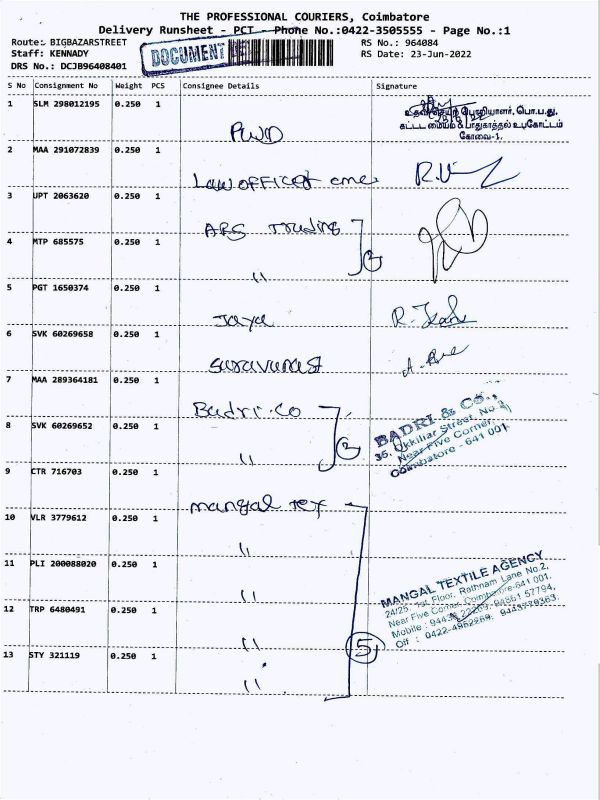 THE PROFESSIONAL COURIERS, Coimbatore
Delivery Runsheet - PCT - Phone No.:0422-3505555 - Page No.:1
Route: BIGBAZARSTREET
RS No.: 964084
Staff: KENNADY
DOCUMENT
RS Date: 23-Jun-2022
DRS No.: DCJB96408401
S No Consignment No Weight PCS Consignee Details Signature
1 SLM 298012195 0.250 1
PWD
உதவி செயற் பொறியாளர், பொ.ப.து.
கட்டட மையம் & பாதுகாத்தல் உபகோட்டம்
கோவை-1.
2 MAA 291072839 0.250 1
Law OFFICE of
3 UPT 2063620 0.250 1
ARS Trading
4 MTP 685575 0.250 1
"
2
5 PGT 1650374 0.250 1
Jaya
6 SVK 60269658 0.250 1
7 MAA 289364181 0.250 1
Badri. Co
8 SVK 60269652 0.250 1
"
2
BADRI & CO.,
35, Ukkiliar Street, No.3
Near Five Corner,
Coimbatore - 641 001
9 CTR 716703 0.250 1
mangal Tex
10 VLR 3779612 0.250 1
"
11 PLI 200088020 0.250 1
"
12 TRP 6480491 0.250 1
"
13 STY 321119 0.250 1
"
5
MANGAL TEXTILE AGENCY
24/25, 1st Floor, Rathnam Lane No.2,
Near Five Corner, Coimbatore-641 001.
Mobile : 94433 57794,
Off : 0422